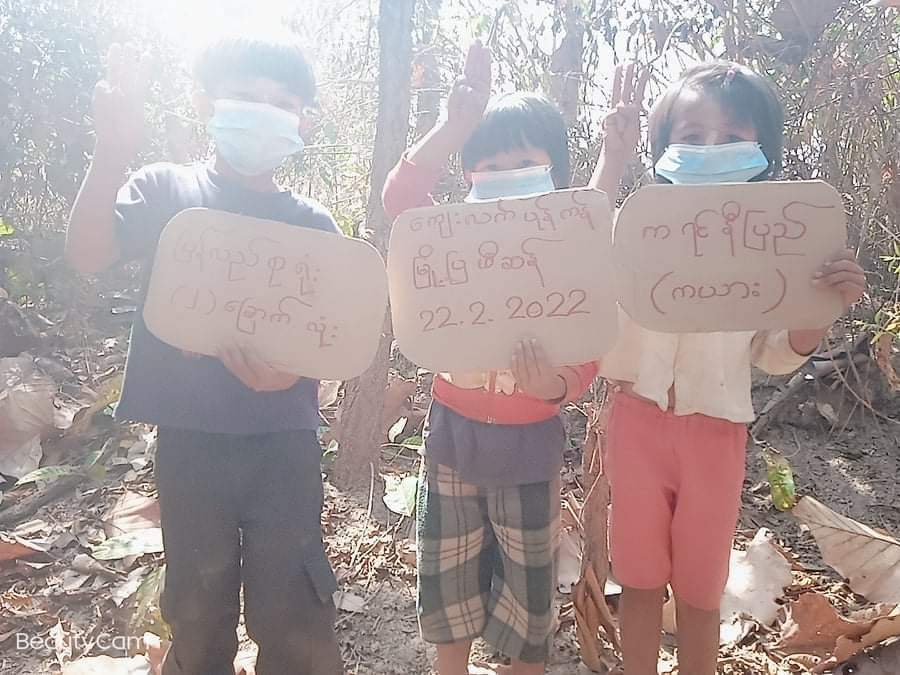 ပြန်လည် စာ ရုံး
(၂) မြောက် လုံး
ကျေးလက် ပုန်ကန်
မြို့ပြ ဖီဆန်
22.2.2022
ကရင်နီပြည်
(ကယား)
BeautyCam